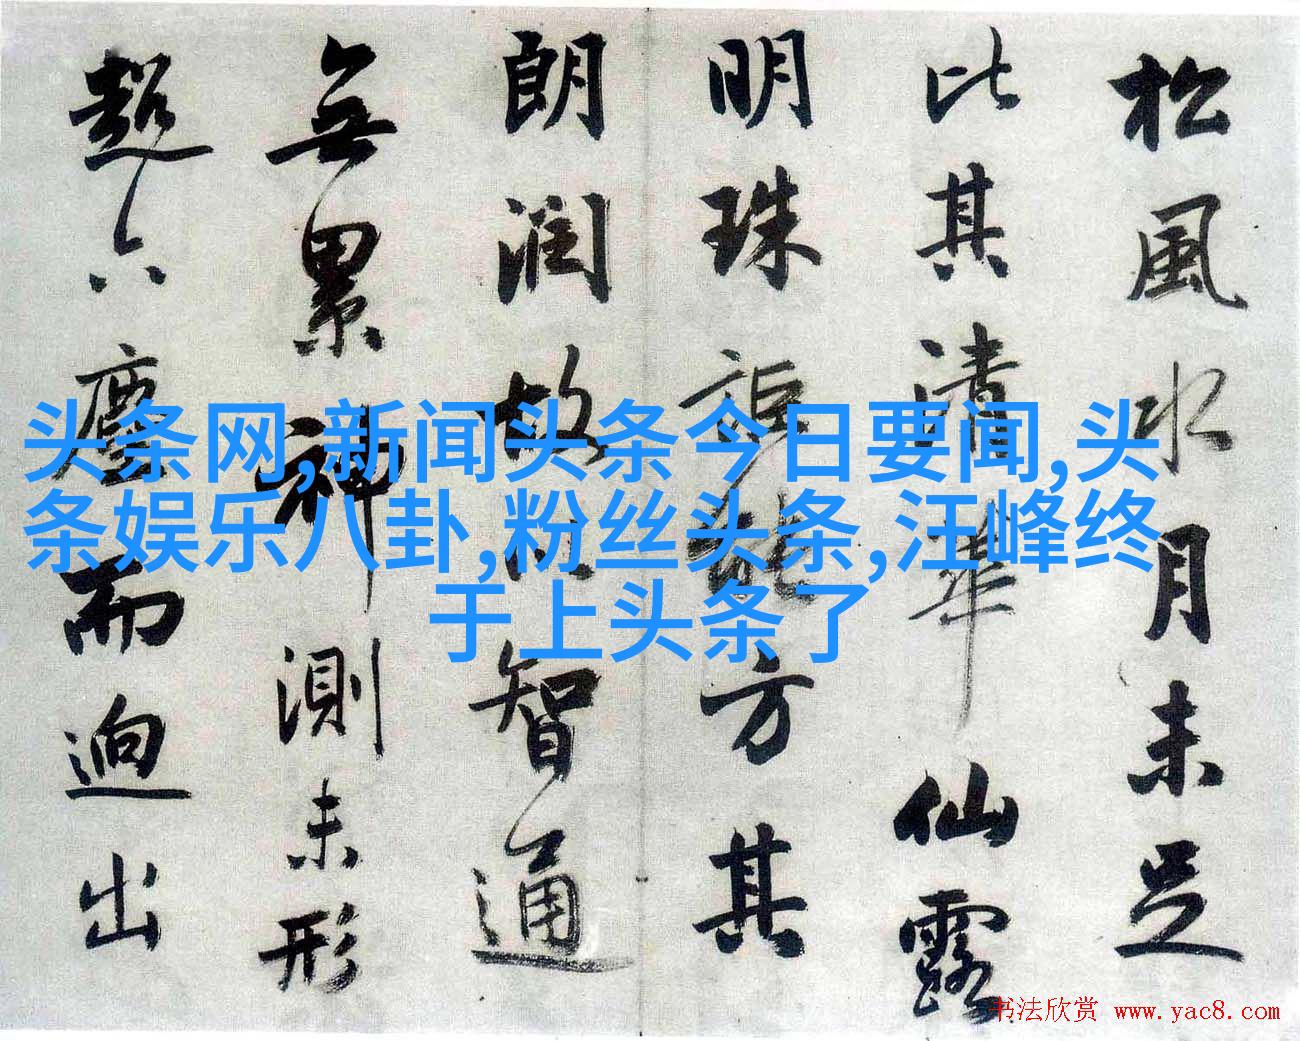 松風水月未足
比其清華仙露
明珠詎能方其
朗潤故以智通
無累神測未形
超六塵而迥出
头条网,新闻头条今日要闻,头
条娱乐八卦,粉丝头条,汪峰终
于上头条了
书法欣赏 www.yac8.com